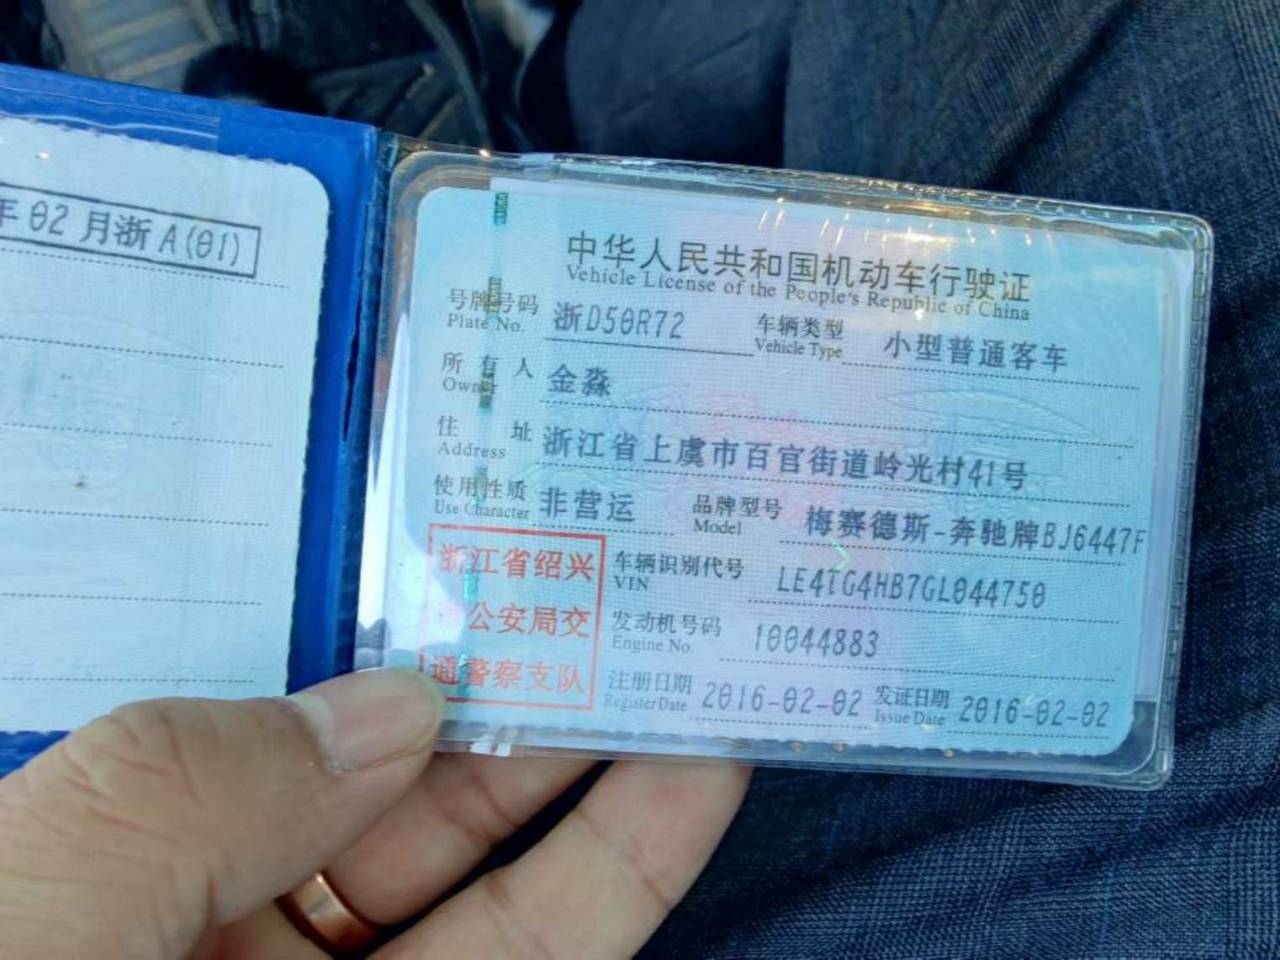 年02月浙A(01)
中华人民共和国机动车行驶证
Vehicle License of the People's Republic of China
号牌号码 浙D50R72 车辆类型 小型普通客车
Plate No. Vehicle Type
所有人 金淼
Owner
住址 浙江省上虞市百官街道岭光村41号
Address
使用性质 非营运 品牌型号 梅赛德斯-奔驰牌BJ6447F
Use Character Model
浙江省绍兴
公安局交
通警察支队
车辆识别代号 LE4TG4HB7GL044750
VIN
发动机号码 10044883
Engine No.
注册日期 2016-02-02 发证日期 2016-02-02
Register Date Issue Date